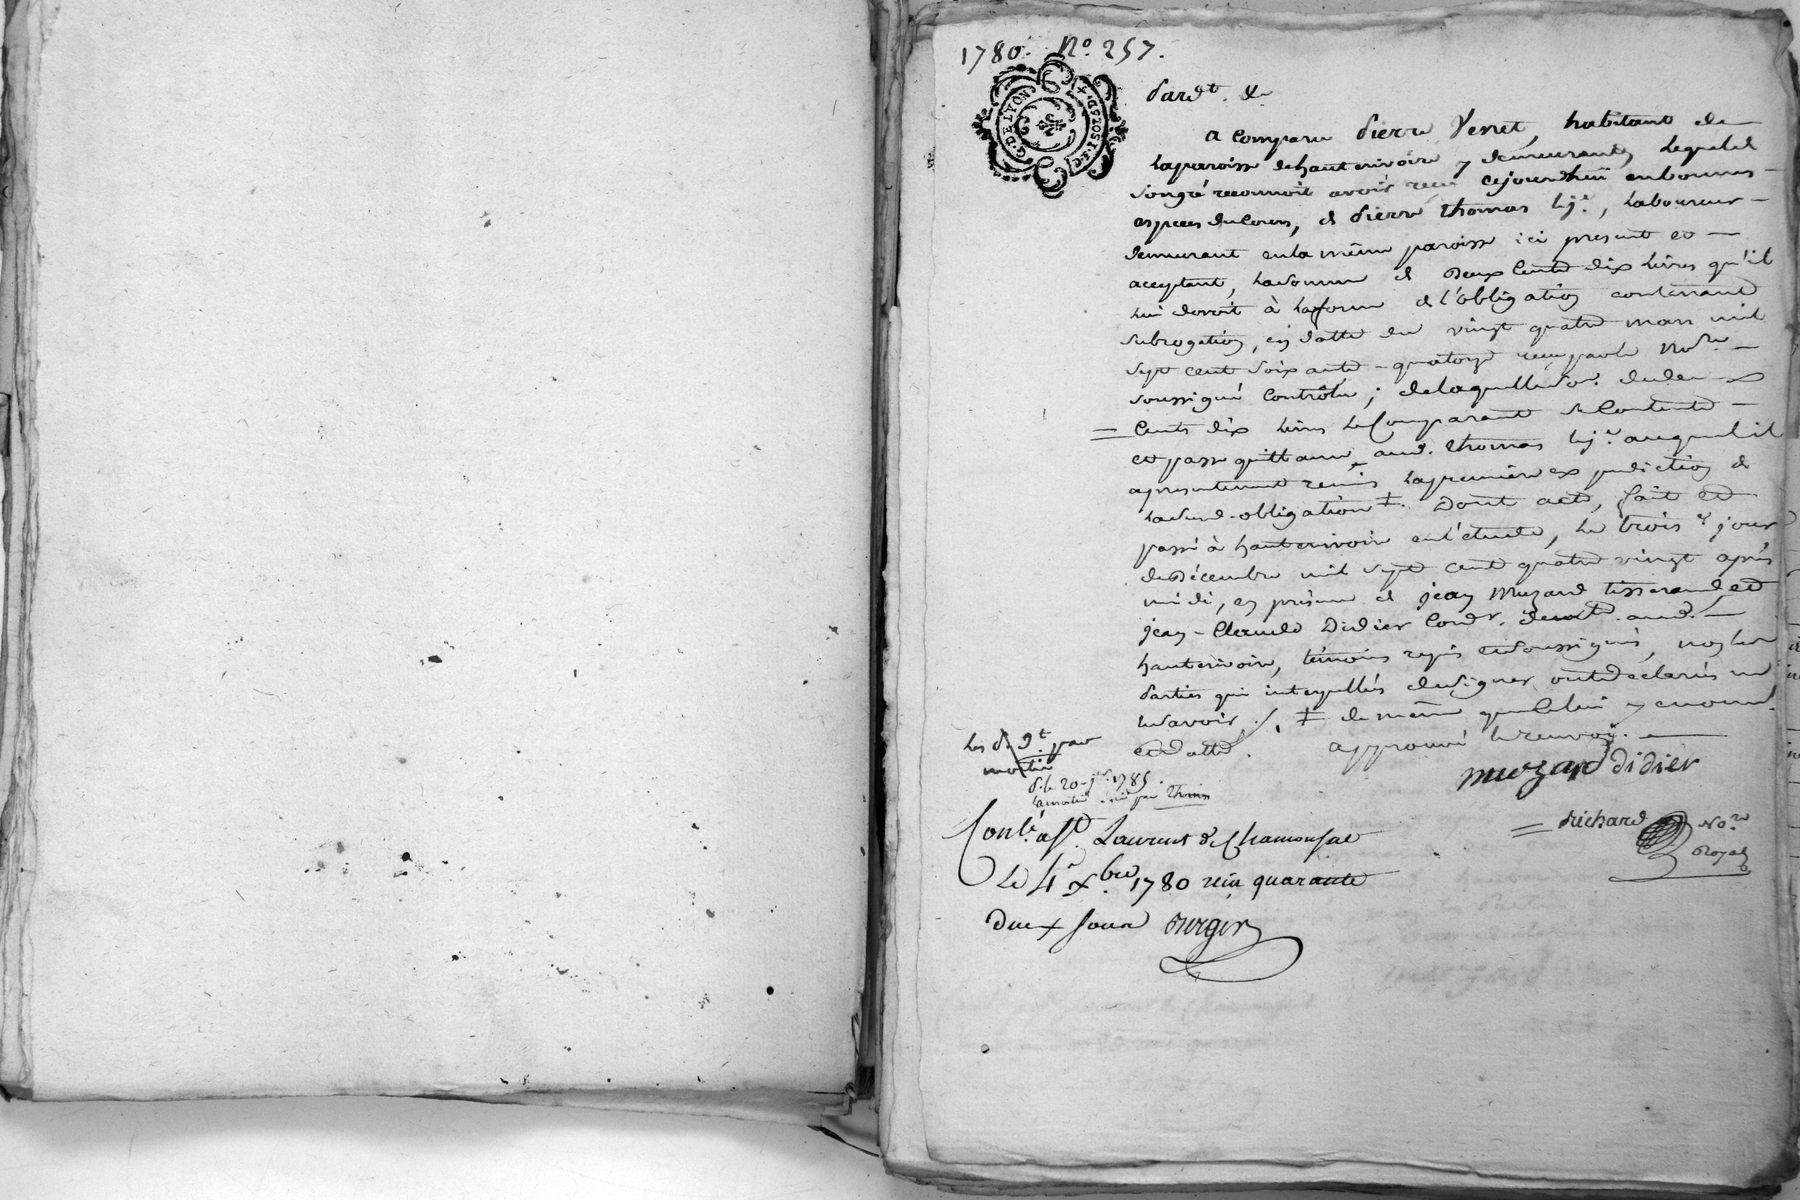 1780. N°. 257.
G. DE LYON
2 SOLS 6 D.
Pard.t &.
a comparu Pierre Verret, habitant de
la paroisse de haut erivoire y demeurant, lequel de
son gré reconnoit avoir reçu cejourd'huii en bonnes
especes de Cours, de Pierre Thomas lj.e, Laboureur
demeurant en la même paroisse ici present et
acceptant, la somme de Deux Cents dix livres qu'il
lui devoit à la forme de l'obligation contenant
subrogation, en datte du vingt quatre mars mil
sept cent soixante-quatorze reçu par le No.re
soussigné Contrôlée; de laquelle so.e de deux
Cents dix livres le Comparant se Contente
et passe quittance aud. Thomas lj.e auquel il
a presentement remis la premiere expedition de
lasusd. obligation ‡. Dont acte, fait et
passé à hauterivoire en l'étude, le trois.e jour
de Décembre mil sept cent quatre vingt après
midi, en présence de jean Muzard tisserand, et
jean-Claude Didier Cord.r demt. aud.
hauterivoire, témoins requis et soussignés, non les
Parties qui interpellées de signer ont déclarées ne
le savoir ./. ‡ de même que Celui y enonn.
et datté. approuvé le renvoy.
muzard didier
Richard No.re Royal
Les d. 9.t par moitié
d. le 20 j.er 1785.
la moitié par Thomas
Conlé à St. Laurent de Chamousset
Le 4e Xbre 1780 reçu quarante
Deux sous Berger